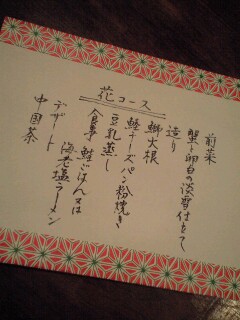 花コース
前菜
蟹と卵白の淡雪仕立て
造り
鰤大根
鮭チーズパン粉焼き
豆乳蒸し
食事 鮭ごはん又は
海老塩ラーメン
デザート
中国茶